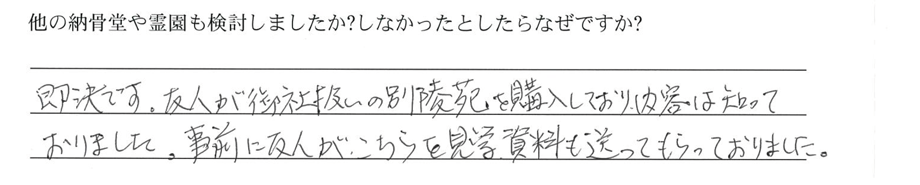 他の納骨堂や霊園も検討しましたか?しなかったとしたらなぜですか?
即決です。友人が御社扱いの別陵苑を購入しており内容は知って
おりました。事前に友人がこちらを見学資料も送ってもらっておりました。